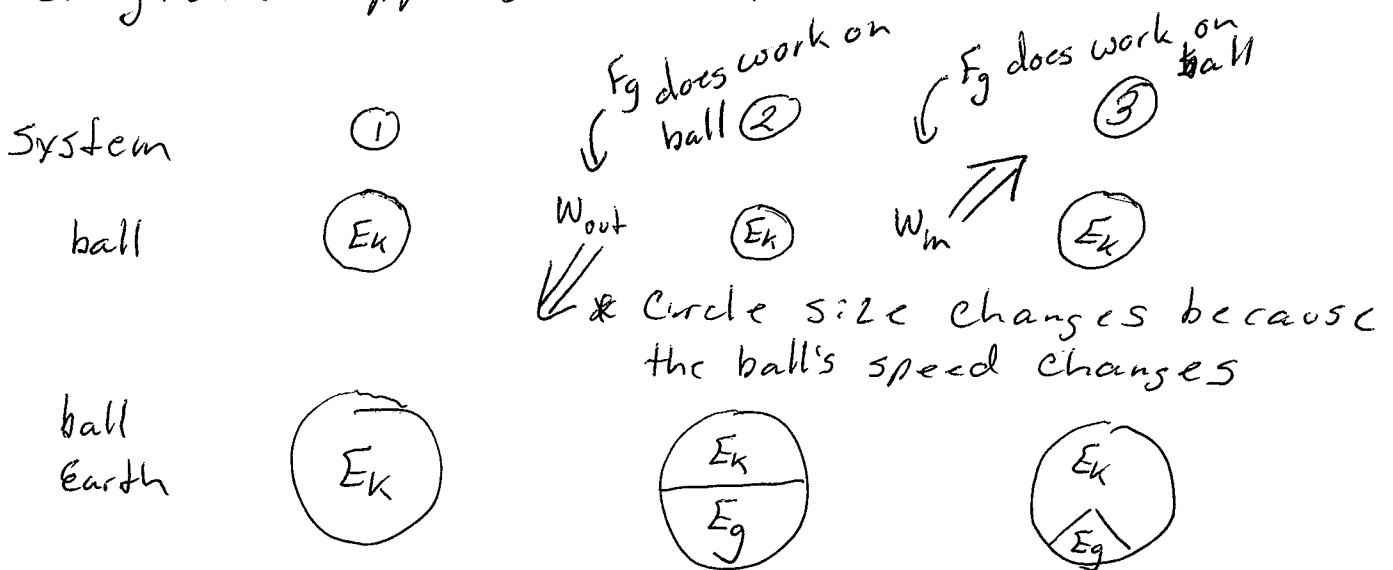 System ① Fg does work on ball ② Fg does work on ball ③
ball Ek Wout Ek Win Ek
* Circle size changes because
the ball's speed changes
ball
Earth Ek Ek Eg Ek Eg